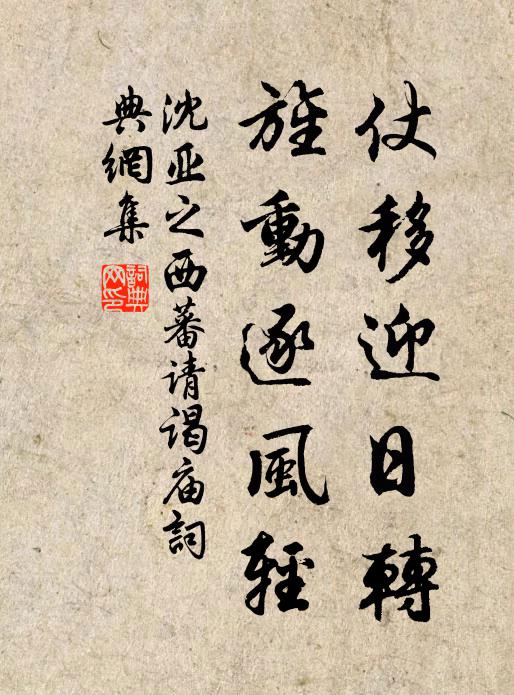 仗移迎日轉
旌動逐風輕
沈亚之西蕃请谒庙詞
典網集
詞典網印